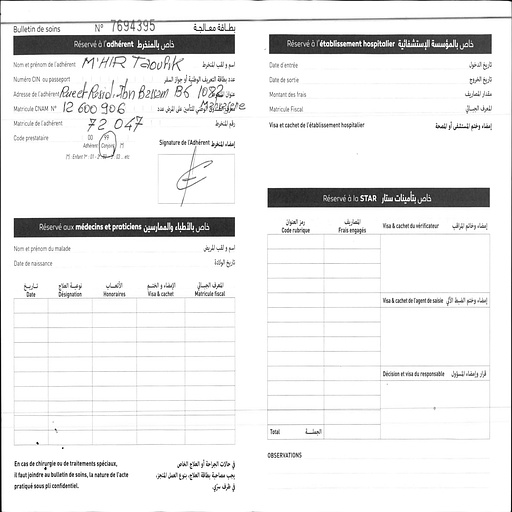 Bulletin de soins N° 7694395 بطاقة معالجة
Réservé à l'adhérent خاص بالمنخرط
Nom et prénom de l'adhérent M'HIR Taoufik اسم و لقب المنخرط
Numéro CIN ou passeport عدد بطاقة التعريف الوطنية أو جواز السفر
Adresse de l'adhérent B6 1082
Matricule CNAM N° 12600906
Matricule de l'adhérent 72 047 رقم المنخرط
Code prestataire 00 99
Adhérent Conjoint
Signature de l'Adhérent إمضاء المنخرط
Réservé aux médecins et praticiens خاص بالأطباء والممارسين
Nom et prénom du malade اسم و لقب المريض
Date de naissance تاريخ الولادة
تاريخ نوعية العلاج الأتعاب الإمضاء و الختم المعرف الجبائي
Date Désignation Honoraires Visa & cachet Matricule fiscal
En cas de chirurgie ou de traitements spéciaux,
il faut joindre au bulletin de soins, la nature de l'acte
pratiqué sous pli confidentiel.
في حالات الجراحة أو العلاج الخاص
يجب مصاحبة بطاقة العلاج، بنوع العمل المنجز،
في ظرف سري.
Réservé à l'établissement hospitalier خاص بالمؤسسة الإستشفائية
Date d'entrée تاريخ الدخول
Date de sortie تاريخ الخروج
Montant des frais مقدار المصاريف
Matricule Fiscal المعرف الجبائي
Visa et cachet de l'établissement hospitalier إمضاء وختم المستشفى أو المصحة
Réservé à la STAR خاص بتأمينات ستار
رمز العنوان المصاريف
Code rubrique Frais engagés
Visa & cachet du vérificateur إمضاء وخاتم المراقب
Visa & cachet de l'agent de saisie إمضاء وختم الضبط الآلي
Décision et visa du responsable قرار وإمضاء المسؤول
Total الجملة
OBSERVATIONS